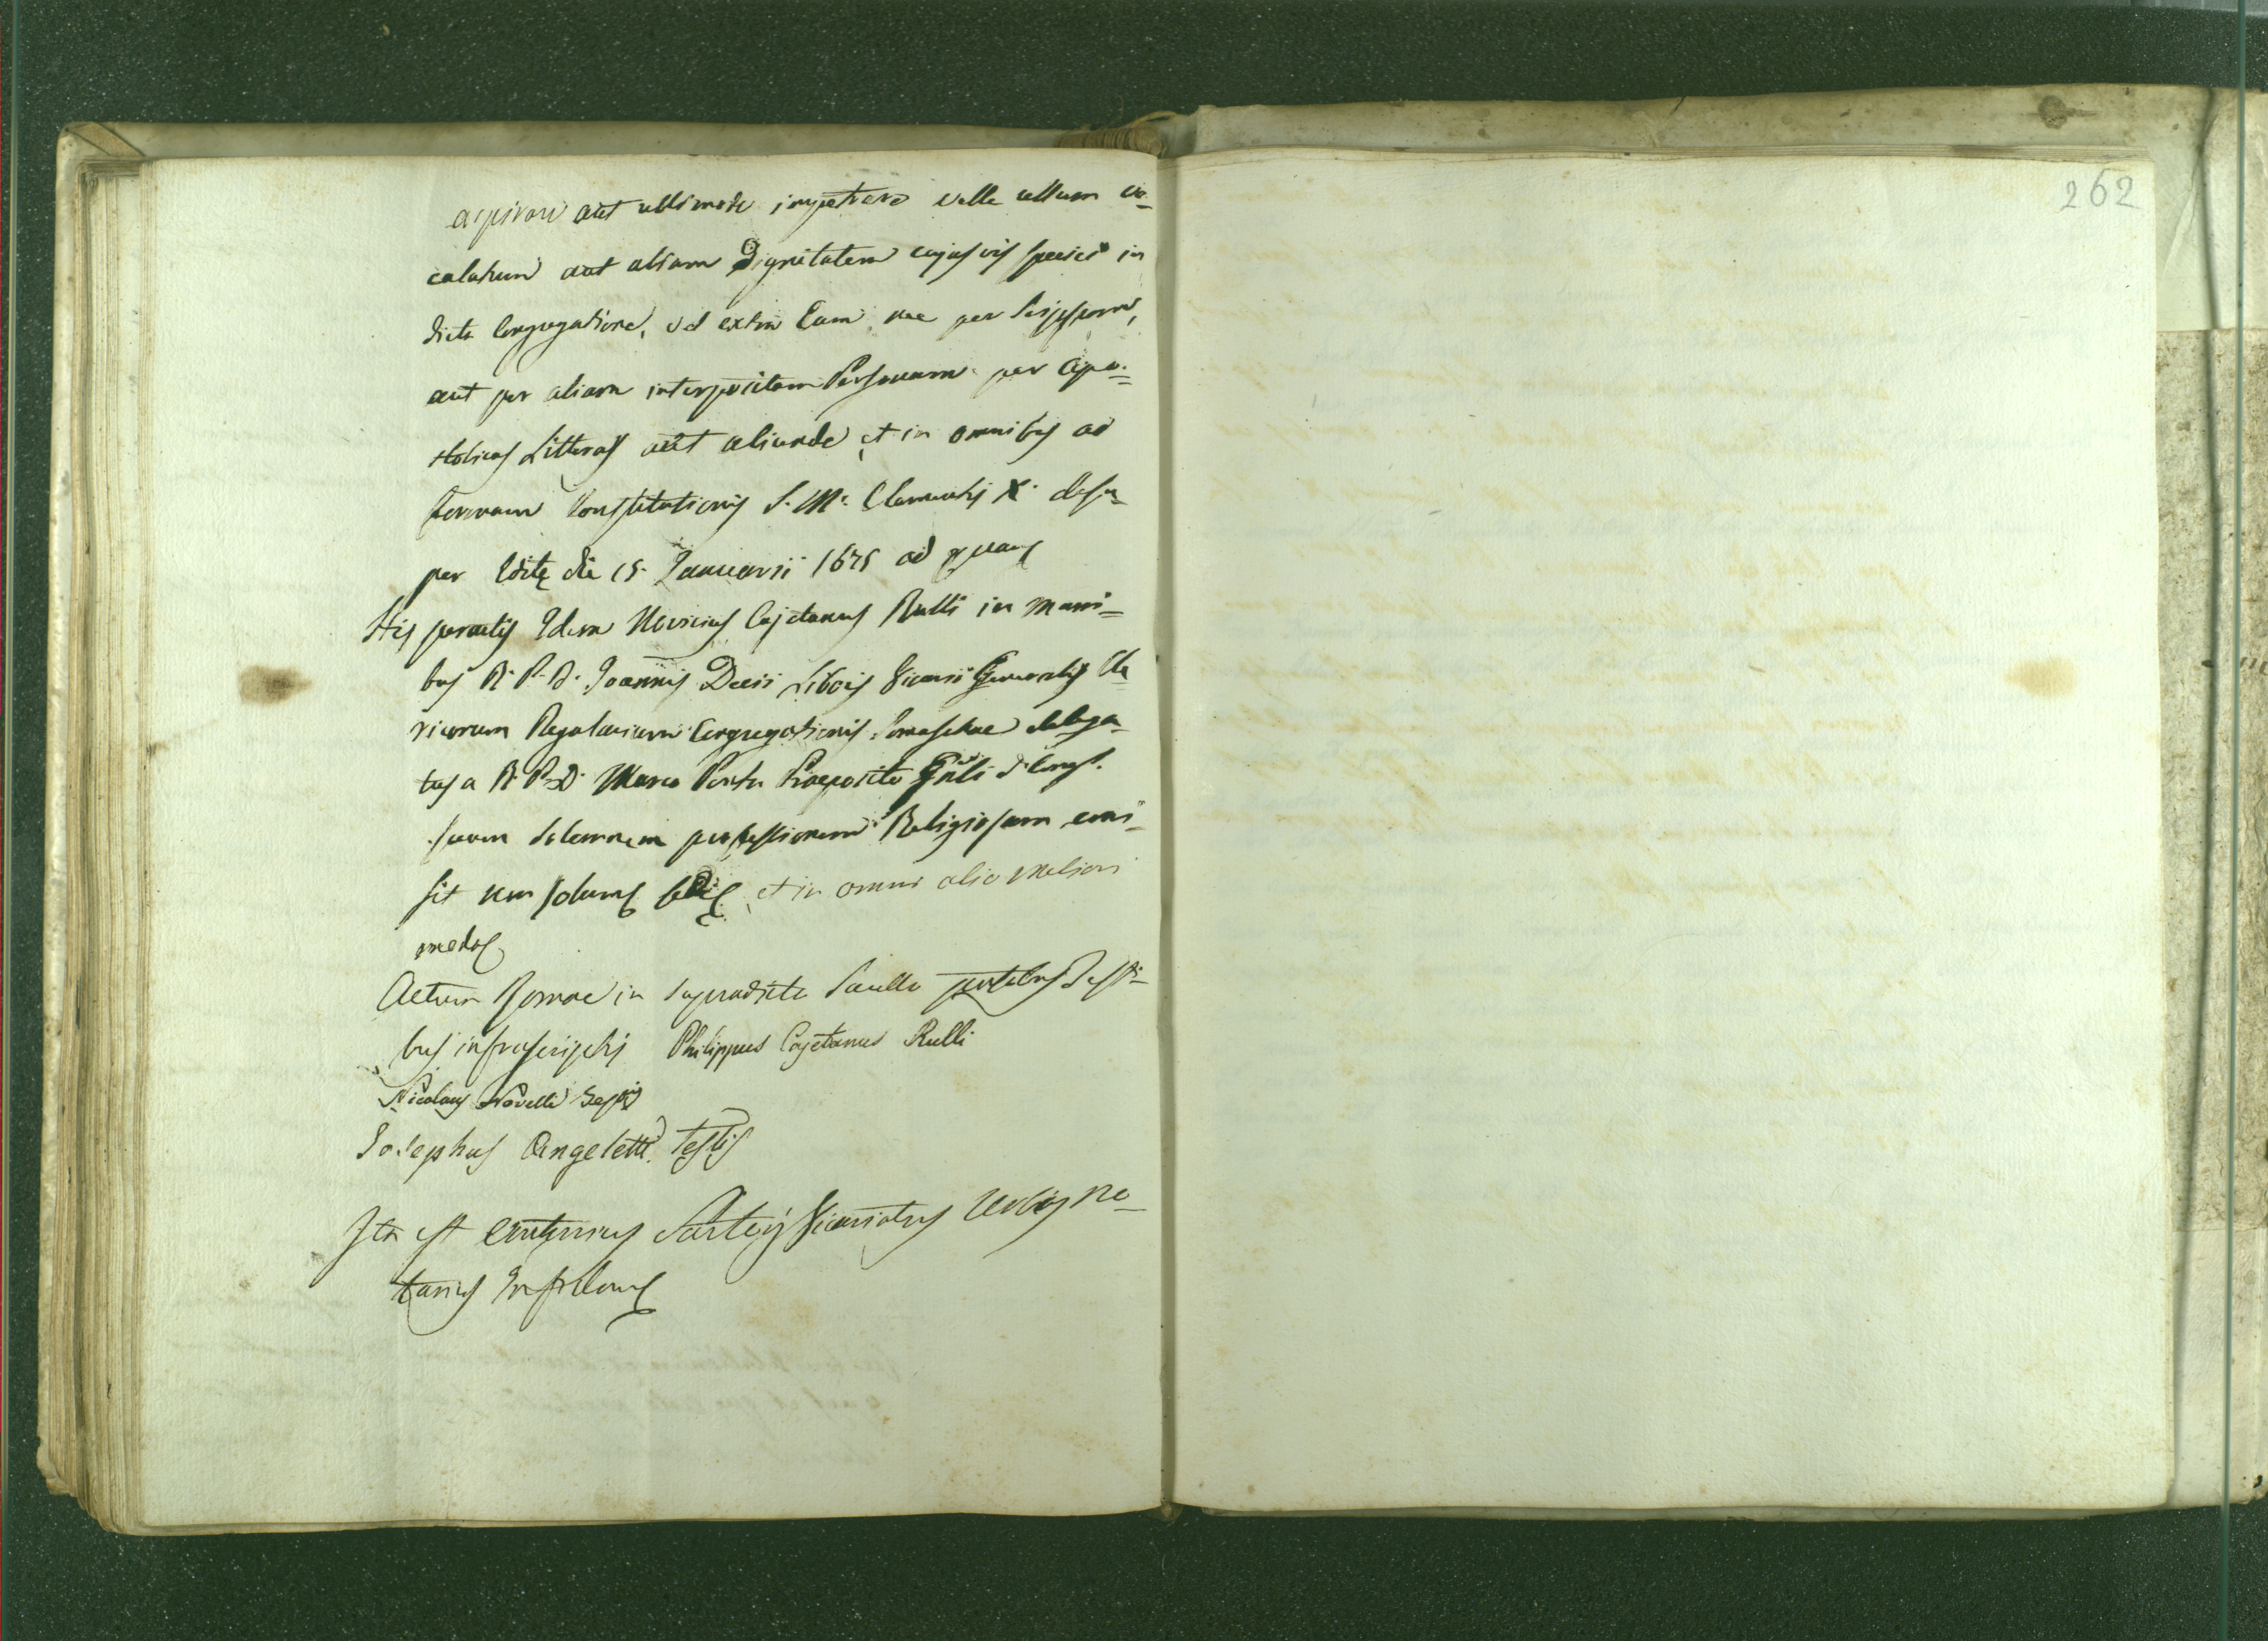 aspirare aut ullimode impetrare velle ullum vo=
calatum aut aliam Dignitatem cujusvis speciei in
dicta Congregatione, vel extra Eam nec per Seipsum,
aut per aliam interpositam Personam per Apo=
stolicas Litteras aut aliunde, et in omnibus ad
formam Constitutionis S. M: Clementis X. desu=
per Editę die 15. Januarii 1675 ad quam
His peractis Idem Novicius Cajetanus Rulli in mani=
bus R. P. D. Joannis Decii Vicarii Generalis Cle
ricorum Regularium Congregationis Somaschae delega=
tus a R. P. D. Marco Praeposito Gnli
suam Solemnem professionem Religiosam emi=
sit non solum sed et in omni alio meliori
modo
Actum Romae in supradicto Sacello Testi=
bus infrascriptis Philippus Cajetanus Rulli
Nicolaus Novelli Testis
Josephus Angeletti Testis
Ita est Vicariatus Urbis No=
tarius
262